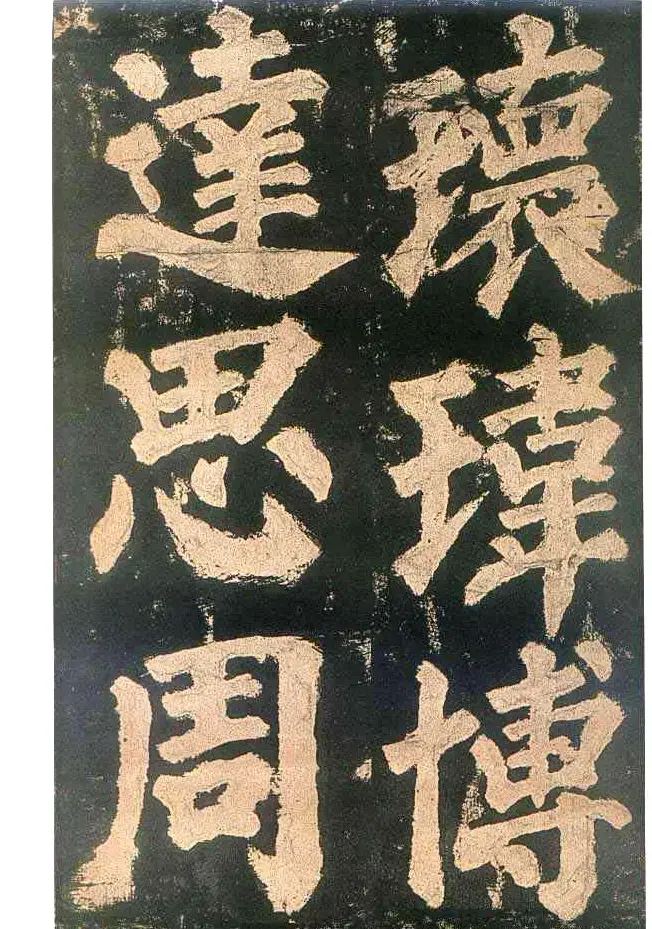 瓌瑋博
達思周